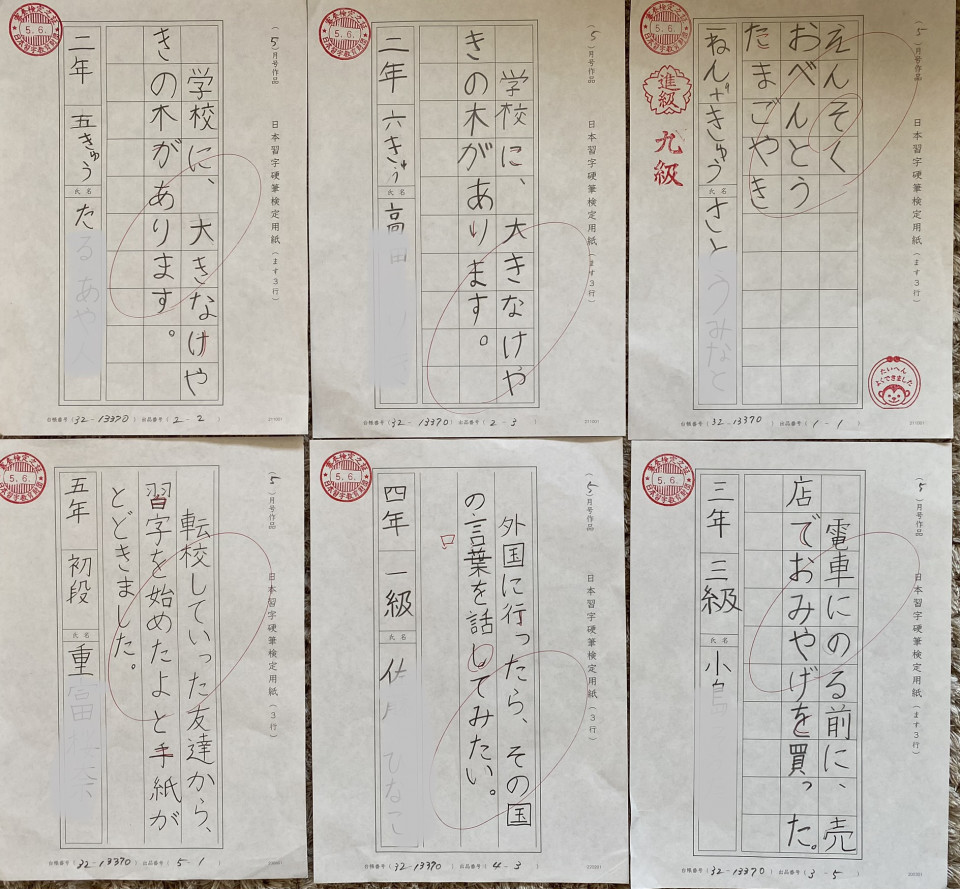 (5)月号作品
日本習字硬筆検定用紙(ます3行)
学校に、大きなけや
きの木があります。
二年 五きゅう
氏名
た
5.6.
台帳番号(32-13370 出品番号(2-2 )
(5)月号作品
日本習字硬筆検定用紙(ます3行)
学校に、大きなけや
きの木があります。
二年 六きゅう
氏名
高田
5.6.
台帳番号(32-13370 出品番号(2-3 )
(5)月号作品
日本習字硬筆検定用紙(ます3行)
えんそく
おべんとう
たまごやき
一ねん
きゅう
氏名
さと
5.6.
進級
九級
たいへん
よくできました
台帳番号(32-13370 出品番号(1-1 )
(5)月号作品
日本習字硬筆検定用紙(3行)
転校していった友達から、
習字を始めたよと手紙が
とどきました。
五年 初段
氏名
重
5.6.
台帳番号(32-13370 出品番号(5-1 )
(5)月号作品
日本習字硬筆検定用紙(3行)
外国に行ったら、その国
の言葉を話してみたい。
四年 一級
氏名
5.6.
台帳番号(32-13370 出品番号(4-3 )
(5)月号作品
日本習字硬筆検定用紙(ます3行)
電車にのる前に、売
店でおみやげを買った。
三年 三級
氏名
小
5.6.
台帳番号(32-13370 出品番号(3-5 )